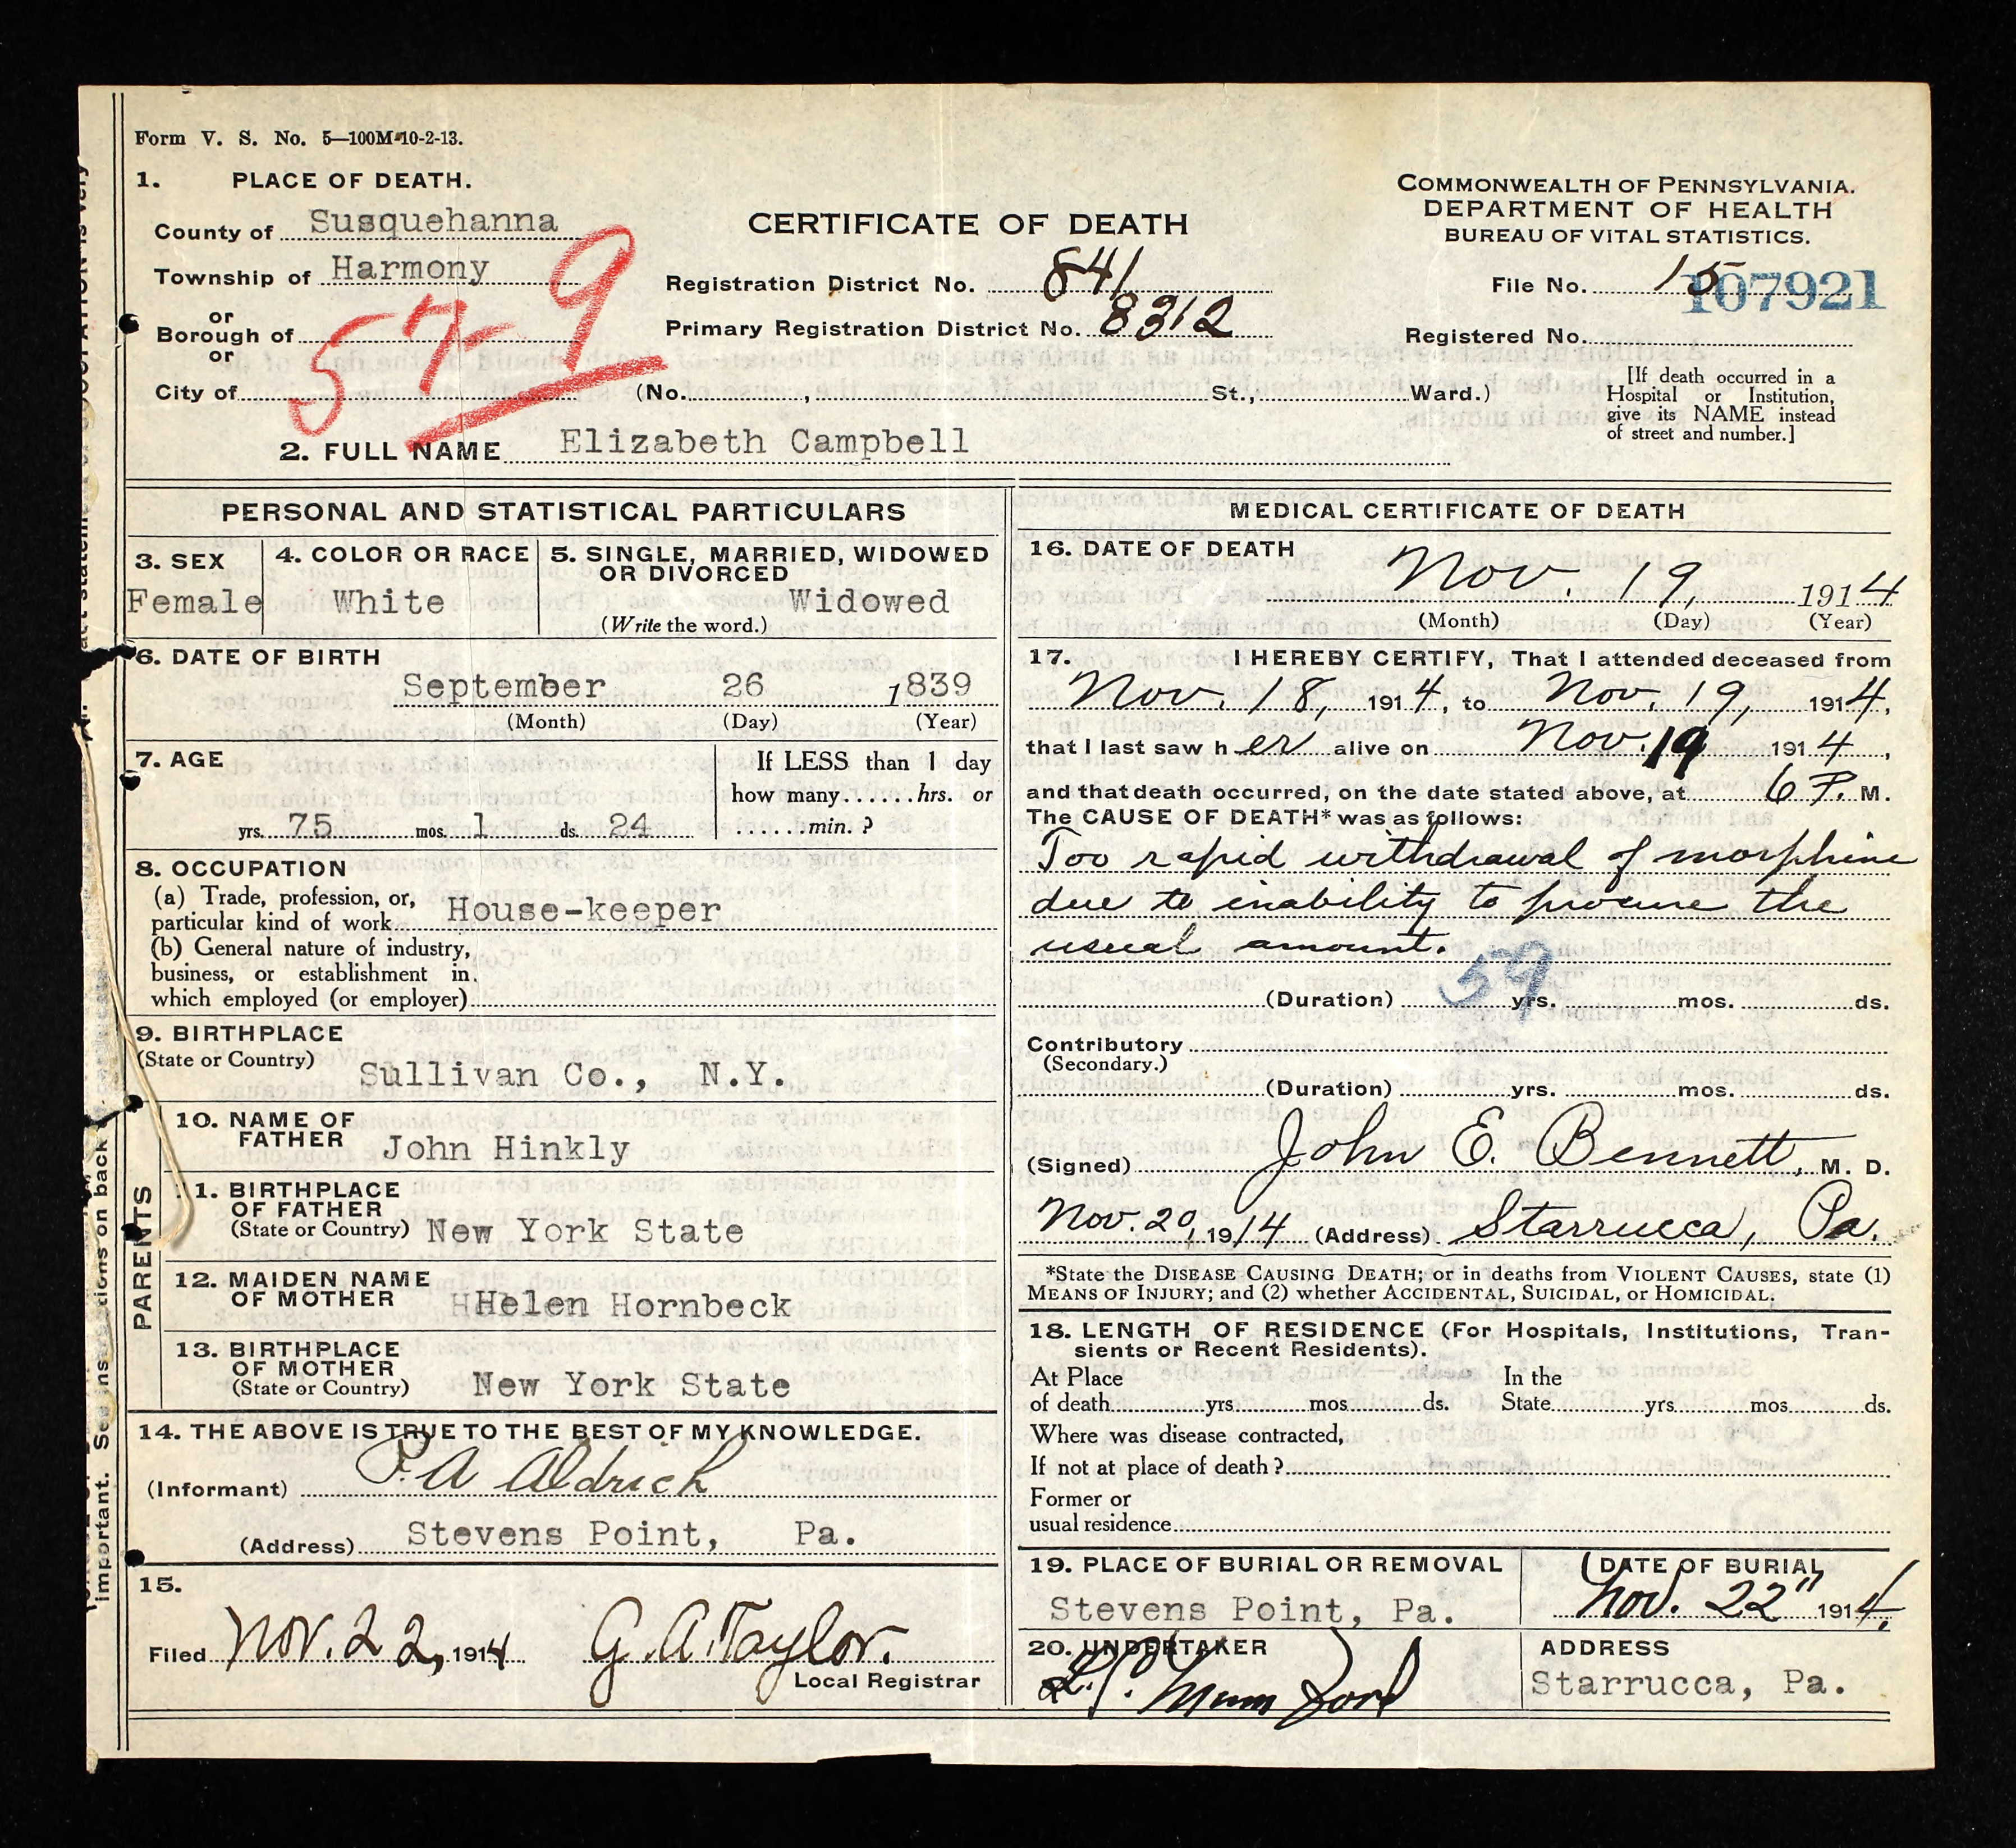 Form V. S. No. 5—100M-10-2-13.
1. PLACE OF DEATH.
County of Susquehanna
Township of Harmony
or
Borough of
or
City of
57-9
CERTIFICATE OF DEATH
Registration District No. 841
Primary Registration District No. 8312
(No. , St., Ward.)
COMMONWEALTH OF PENNSYLVANIA.
DEPARTMENT OF HEALTH
BUREAU OF VITAL STATISTICS.
File No. 15 107921
Registered No.
[If death occurred in a
Hospital or Institution,
give its NAME instead
of street and number.]
2. FULL NAME Elizabeth Campbell
PERSONAL AND STATISTICAL PARTICULARS
3. SEX
Female
4. COLOR OR RACE
White
5. SINGLE, MARRIED, WIDOWED
OR DIVORCED
Widowed
(Write the word.)
6. DATE OF BIRTH
September 26 1839
(Month) (Day) (Year)
7. AGE
yrs. 75 mos. 1 ds. 24
If LESS than 1 day
how many......hrs. or
......min. ?
8. OCCUPATION
(a) Trade, profession, or,
particular kind of work House-keeper
(b) General nature of industry,
business, or establishment in
which employed (or employer)
9. BIRTHPLACE
(State or Country) Sullivan Co., N.Y.
PARENTS
10. NAME OF
FATHER John Hinkly
11. BIRTHPLACE
OF FATHER
(State or Country) New York State
12. MAIDEN NAME
OF MOTHER HHelen Hornbeck
13. BIRTHPLACE
OF MOTHER
(State or Country) New York State
14. THE ABOVE IS TRUE TO THE BEST OF MY KNOWLEDGE.
(Informant) P. A Aldrich
(Address) Stevens Point, Pa.
15.
Filed Nov. 22, 1914 G. A. Taylor.
Local Registrar
MEDICAL CERTIFICATE OF DEATH
16. DATE OF DEATH
Nov. 19, 1914
(Month) (Day) (Year)
17. I HEREBY CERTIFY, That I attended deceased from
Nov. 18, 1914, to Nov. 19, 1914,
that I last saw her alive on Nov. 19 1914,
and that death occurred, on the date stated above, at 6 P. M.
The CAUSE OF DEATH* was as follows:
Too rapid withdrawal of morphine
due to inability to procure the
usual amount.
59
(Duration) yrs. mos. ds.
Contributory
(Secondary.)
(Duration) yrs. mos. ds.
(Signed) John E. Bennett, M. D.
Nov. 20, 1914 (Address) Starrucca, Pa.
*State the DISEASE CAUSING DEATH; or in deaths from VIOLENT CAUSES, state (1)
MEANS OF INJURY; and (2) whether ACCIDENTAL, SUICIDAL, or HOMICIDAL.
18. LENGTH OF RESIDENCE (For Hospitals, Institutions, Tran-
sients or Recent Residents).
At Place In the
of death yrs. mos. ds. State yrs. mos. ds.
Where was disease contracted,
If not at place of death ?
Former or
usual residence
19. PLACE OF BURIAL OR REMOVAL
Stevens Point, Pa.
DATE OF BURIAL
Nov. 22" 1914.
20. UNDERTAKER
Mumford
ADDRESS
Starrucca, Pa.
important. See instructions on back